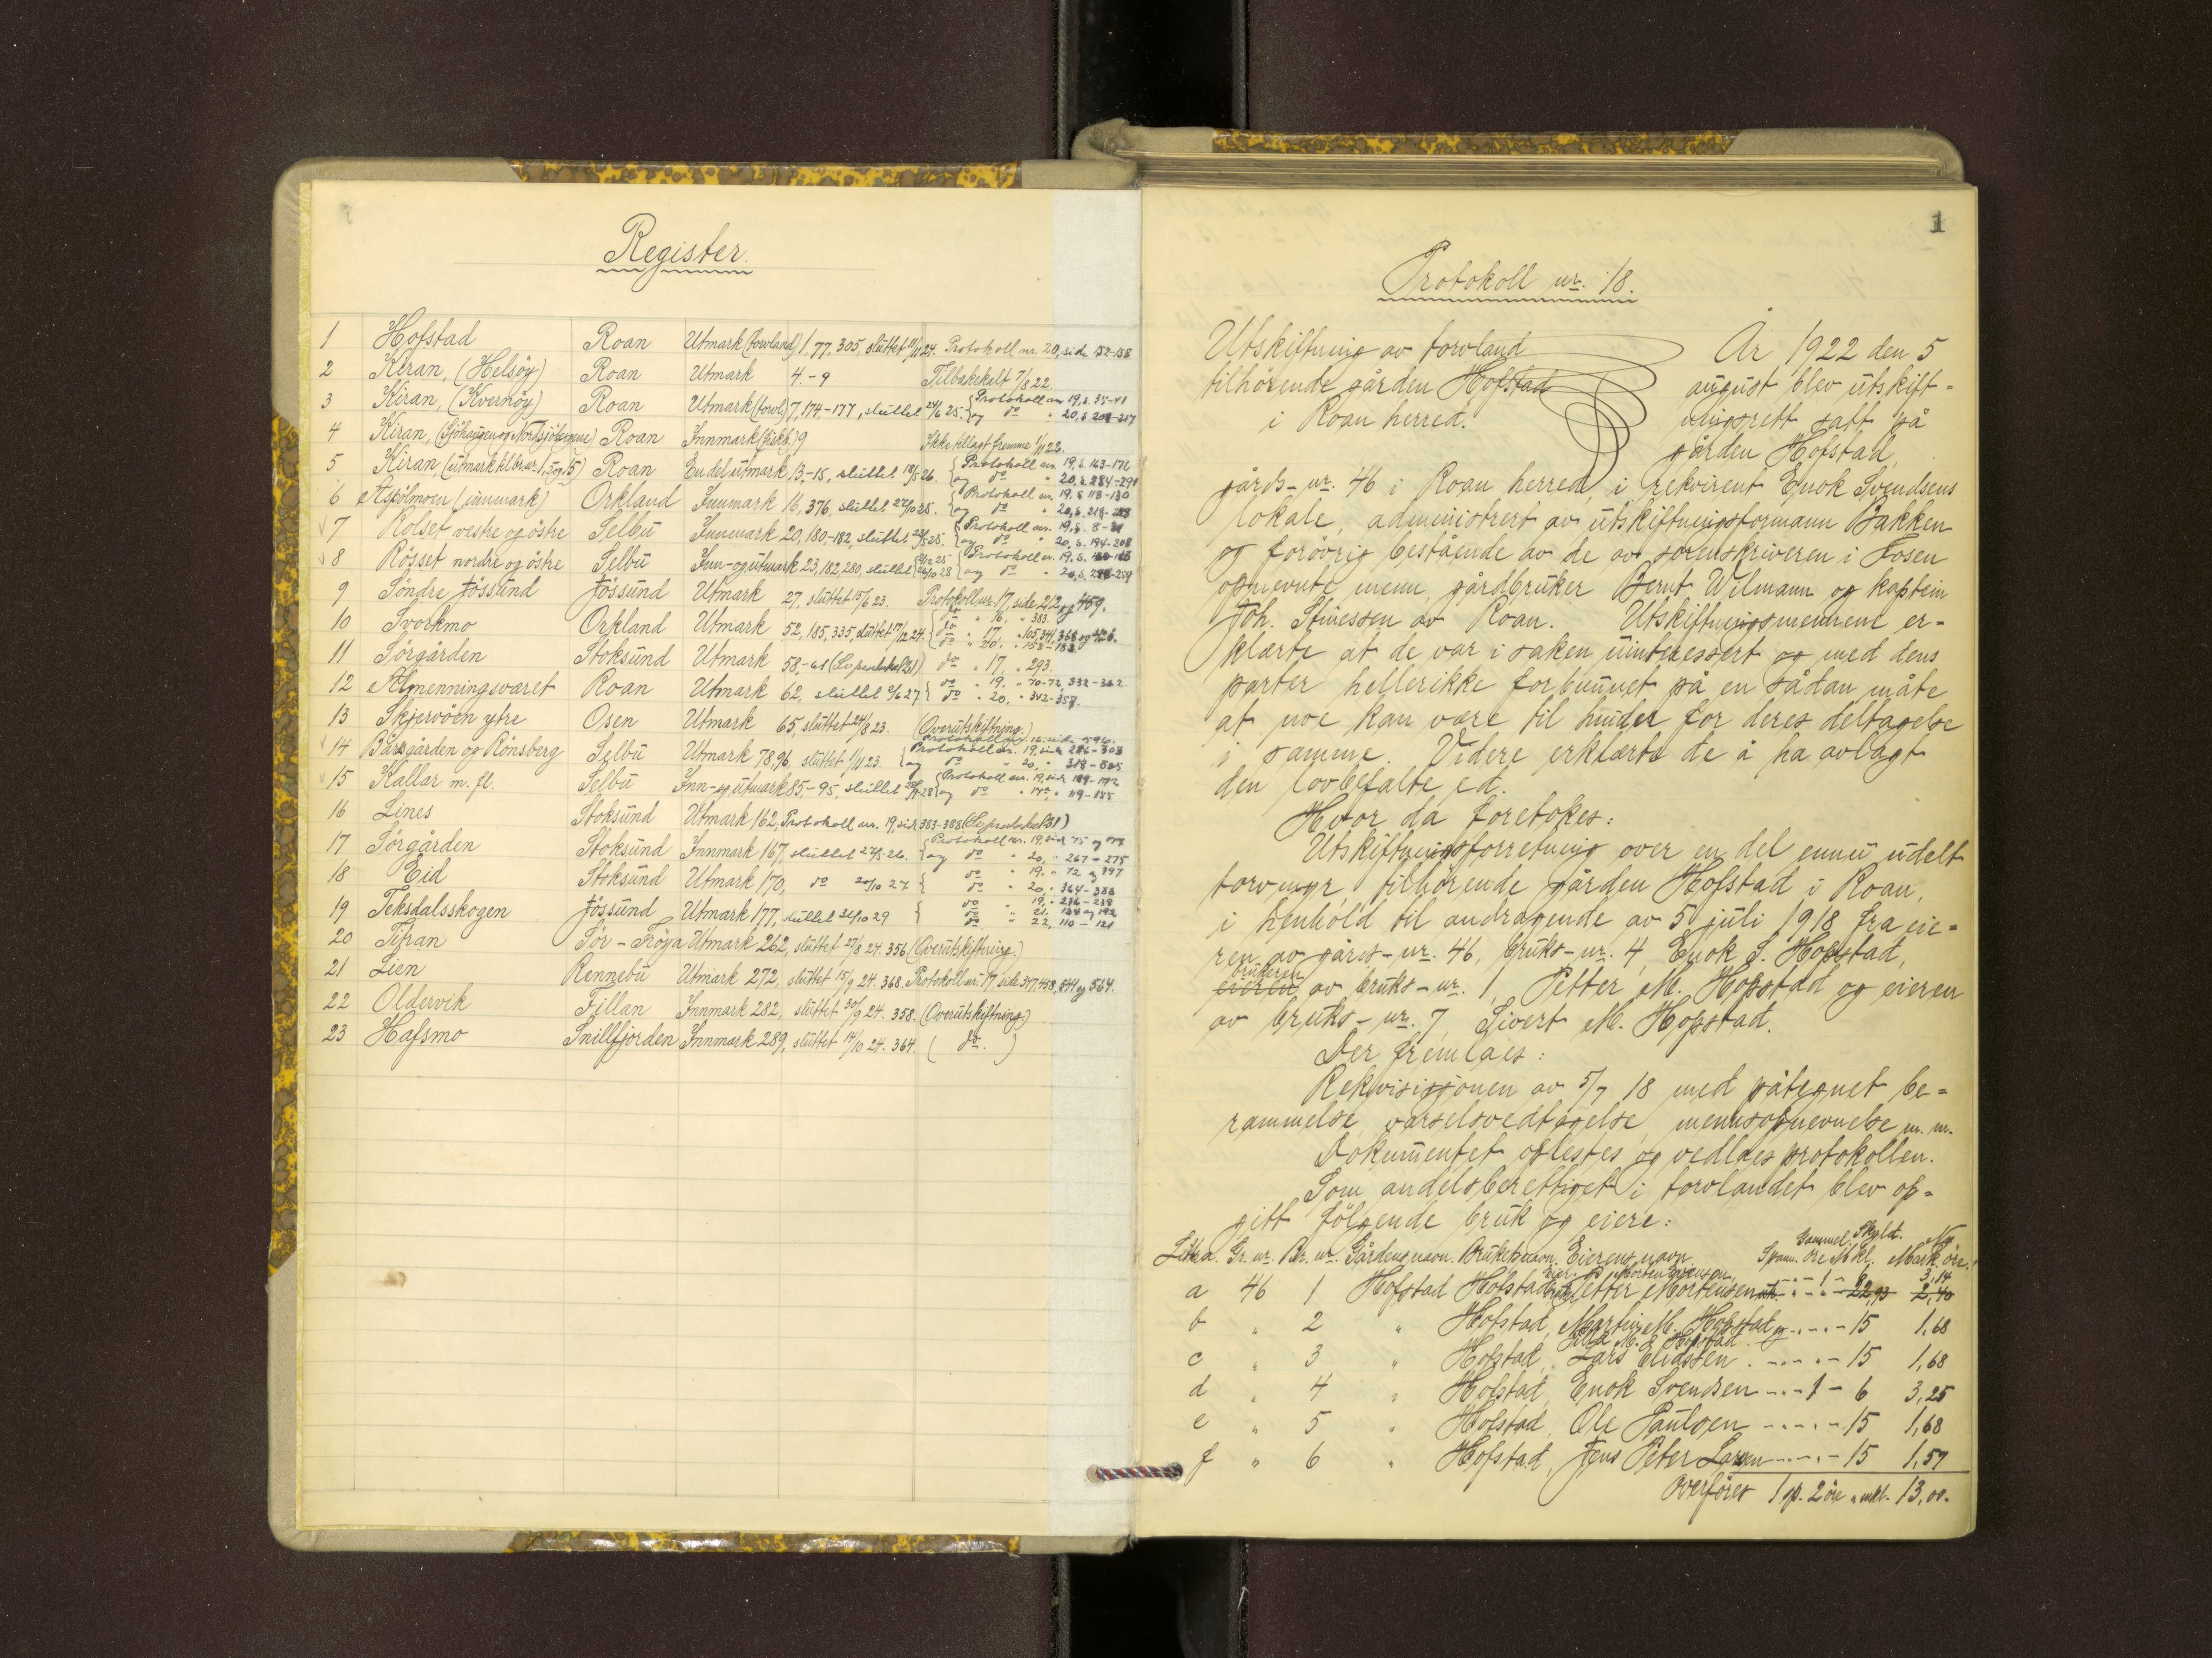 Register.
1 Hofstad Roan Utmark (torvland) 1, 77, 305, sluttet 11/11 24. Protokoll nr. 20, side 152-158
2 Kiran, (Helsöy) Roan Utmark 4.-9 Tilbakekalt 7/8 22.
3 Kiran, (Kvernöy) Roan Utmark (torvl) 7, 174-177, sluttet 24/6 25. { Protokoll nr 19, s. 35-41
og do " 20, s. 208-217
4 Kiran, Roan Innmark 9 Ikke tillagt fremme 1/11 22.
5 Kiran (utmark til br. nr. 1, 3 og 5) Roan En del utmark 13,-15, sluttet 18/5 26. { Protokoll nr. 19, s. 163-176
og do " 20, s. 284-291
6 Aspölmoen (innmark) Orkland Innmark 16, 376, sluttet 27/10 25. { Protokoll nr. 19, s. 113-130
og do " 20, s. 218-
7 Rolset vestre og östre Selbu Innmark 20, 180-182, sluttet 25. { Protokoll nr. 19, s. 8-21
og do " 20, s. 194-208
8 Rösset nordre og östre Selbu Inn- og utmark 23, 182, 280, sluttet { Protokoll nr. 19, s.
og do " 20, s. -259
9 Söndre Jössund Jössund Utmark 27, sluttet 15/6 23. Protokoll nr. 17, side 212 og 459.
10 Svorkmo Orkland Utmark 52, 185, 335, sluttet 17/12 24. { do " 16, " 383.
do " 17, " 105, 341, 368 og 426.
do " 20, " 158-
11 Sörgården Stoksund Utmark 58-61 do " 17, " 293.
12 Almenningsværet Roan Utmark 62, sluttet 2/6 27 { do " 19, " 70-72, 332-362.
do " 20, " 342-357.
13 Skjervöen ytre Osen Utmark 65, sluttet 24/8 23. (Overutskiftning.)
Protokoll nr. 16, side 596.
14 Bårdsgården og Rönsberg Selbu Utmark 78, 96, sluttet 1/11 23. { Protokoll nr. 19, side 286-303
og do " 20, " 318-
15 Kallar m. fl. Selbu Inn- og utmark 85,-95, sluttet 28 { Protokoll nr. 19, side 189-192
og do " " 119-
16 Lines Stoksund Utmark 162, Protokoll nr. 19, side 383-388
17 Sörgården Stoksund Innmark 167, sluttet 22/5 26. { Protokoll nr. 19, side 75 og
og do " 20, " 267-275
18 Eid Stoksund Utmark 170, do 20/10 27 { do " 19, " 72 og 397
do " 20, " 364-388
19 Teksdalsskogen Jössund Utmark 177, sluttet 31/10 29 { do " 19, " 216-
do " 21, " 134 og 192
do " 22, " 110-121
20 Titran Sör-Fröya Utmark 262, sluttet 27/8 24. 356 (Overutskiftning.)
21 Lien Rennebu Utmark 272, sluttet 15/9 24. 368. Protokoll nr. 17 side 377, 458, 544 og 564.
22 Oldervik Fillan Innmark 282, sluttet 30/9 24. 358. (Overutskiftning.)
23 Hafsmo Snillfjorden Innmark 289, sluttet 14/10 24. 364. ( do. )
1
Protokoll nr. 18.
Utskiftning av torvland
tilhörende gården Hofstad
i Roan herred.
År 1922 den 5
august blev utskift-
ningsrett satt på
gården Hofstad,
gårds-nr. 46 i Roan herred, i rekvirent Enok Svendsens
lokale, administrert av utskiftningsformann Bakken
og forövrig bestående av de av sorenskriveren i Fosen
opnevnte menn, gårdbruker Bernt Wilmann og kaptein
Joh. Stinessen av Roan. Utskiftningsmennene er-
klærte at de var i saken uinteressert og med dens
parter heller ikke forbunnet på en sådan måte
at noe kan være til hinder for deres deltagelse
i samme. Videre erklærte de å ha avlagt
den lovbefalte ed.
Hvor da foretokes:
Utskiftningsforretning over en del ennu udelt
torvmyr, tilhörende gården Hofstad i Roan,
i henhold til andragende av 5 juli 1918 fra eie-
ren av gårds-nr. 46, bruks-nr. 4, Enok S. Hopstad,
brukeren
eieren av bruks-nr. 1, Petter M. Hopstad og eieren
av bruks-nr. 7, Sivert M. Hopstad.
Der fremlaes:
Rekvisisjonen av 5/7 18 med påtegnet be-
rammelse, varselsvedtagelse, mennsopnevnelse m. m.
Dokumentet oplestes og vedlaes protokollen.
Som andelsberettiget i torvlandet blev op-
gitt fölgende bruk og eiere:
Gammel Skyld. Ny
Litra. Gr. nr. Br. nr. Gårdens navn. Brukets navn. Eierens navn. Spann. öre Mkl. Mark öre.
a 46 1 Hofstad Hofstad Petter Mortensen 1 - 6 22,93 3,14 2,40
b " 2 " Hofstad, Martin M. Hopstad og - 15 1,68
c " 3 " Hofstad, Lars Eliassen - 15 1,68
d " 4 " Hofstad, Enok Svendsen 1 - 6 3,25
e " 5 " Hofstad, Ole Paulsen - 15 1,68
f " 6 " Hofstad, Jens Peter Larsen - 15 1,57
Overföres 1 sp. 2 öre " mkl. 13,00.